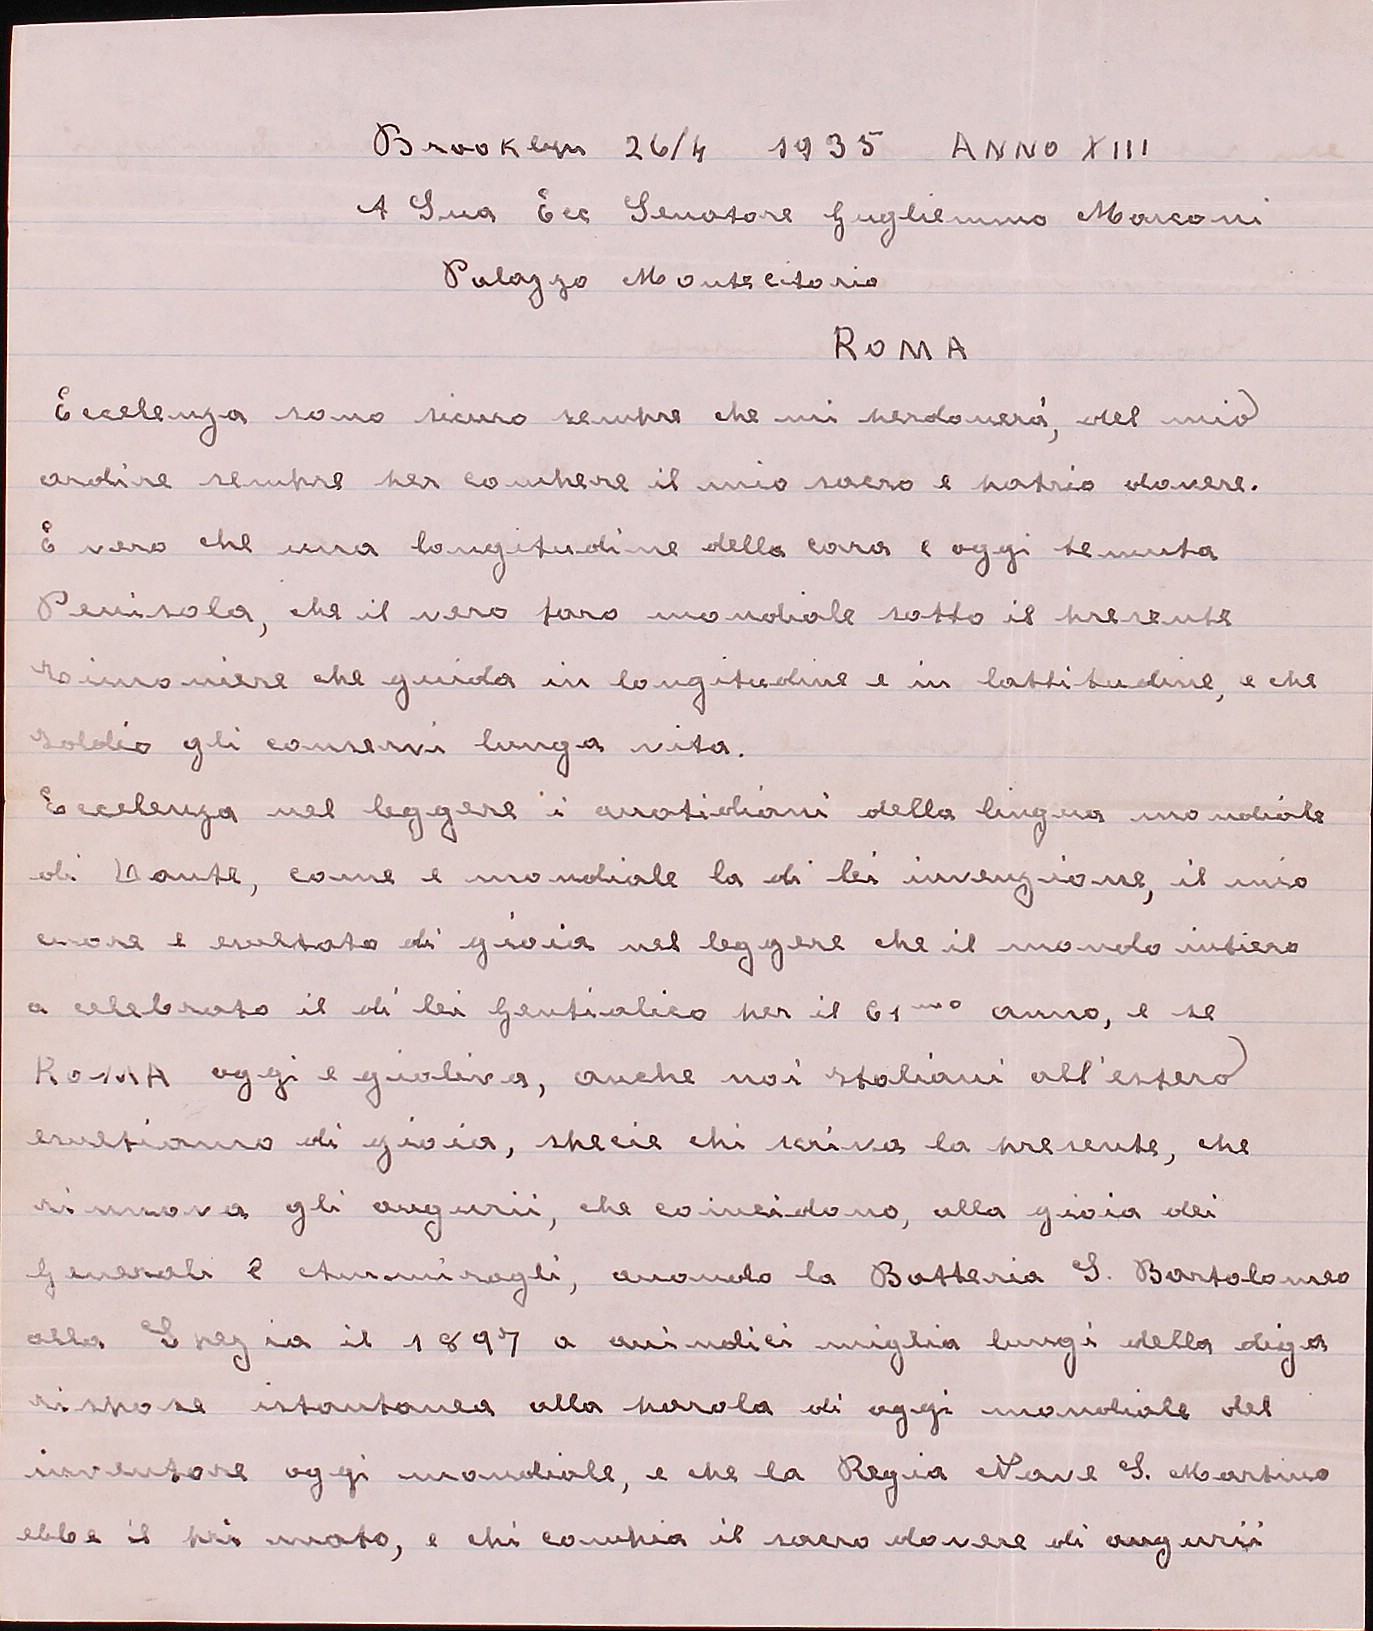 Brooklyn 26/4 1935 ANNO XIII
A Sua Ecc Senatore Guglienmo Marconi
Palazzo Montecitorio
ROMA
Eccelenza sono sicuro sempre che mi perdonerá, del mio
ardire sempre per compere il mio sacro e patrio dovere.
È vero che una longitudine della cara e oggi temuta
Penisola, che il vero faro mondiale sotto il presente
Timoniere che guida in longitudine e in lattitudine, e che
Iddio gli conservi lunga vita.
Eccelenza nel leggere i quotidiani della lingua mondiale
di Dante, come e mondiale la di lei invenzione, il mio
cuore e esultato di gioia nel leggere che il mondo intiero
a celebrato il di lei Gentialico per il 61mo anno, e se
ROMA oggi e gioliva, anche noi Italiani all'estero
esultiamo di gioia, specie chi scriva la presente, che
rinnova gli augurii, che coincidono, alla gioia dei
Generali e Ammiragli, quando la Batteria S. Bartolomeo
alla Spezia il 1897 a quindici miglia lungi della diga
rispose istantanea alla parola di oggi mondiale del
inventore oggi mondiale, e che la Regia Nave S. Martino
ebbe il pri mato, e chi compia il sacro dovere di augurii